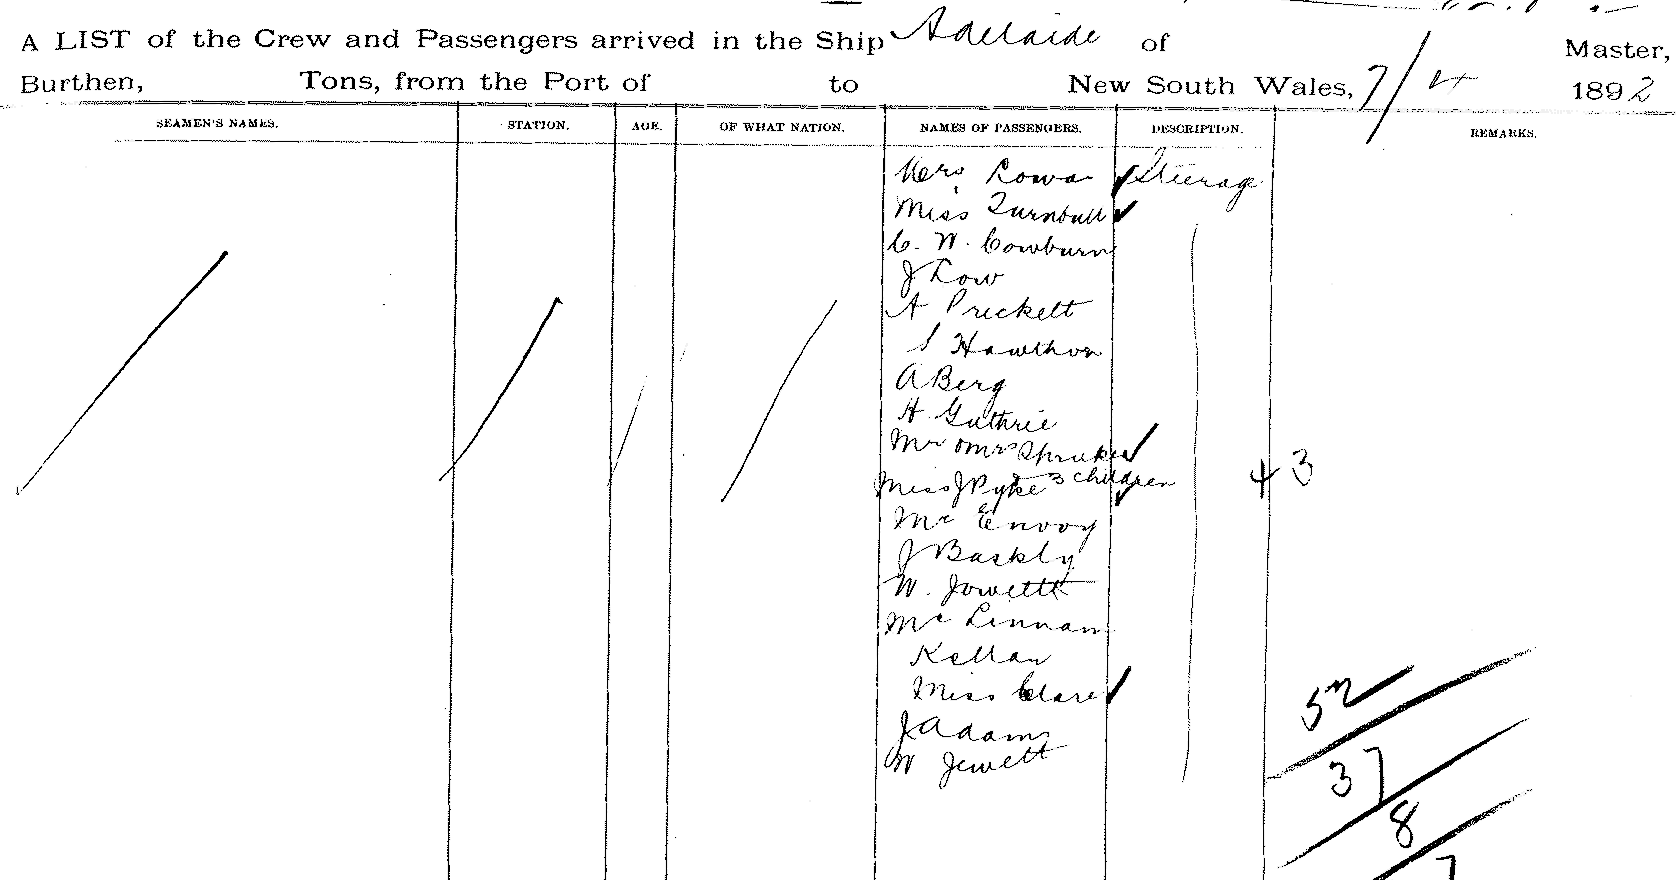 A LIST of the Crew and Passengers arrived in the Ship Adelaide of Master,
Burthen, Tons, from the Port of to New South Wales, 7/4 1892
SEAMEN'S NAMES. STATION. AGE. OF WHAT NATION. NAMES OF PASSENGERS. DESCRIPTION. REMARKS.
Mrs Rowan Steerage
Miss Turnbull
C. W. Cowburn
J Low
A Prickett
S Hawthon
A Berg
H Guthrie
Mr & Mrs
3 children 4 3
Miss J Pyke
Mc Evoy
J
W. Jowett
Mc Lennan
Kellan
Miss Clare
52
J Adams
W Jewett
37
8
7